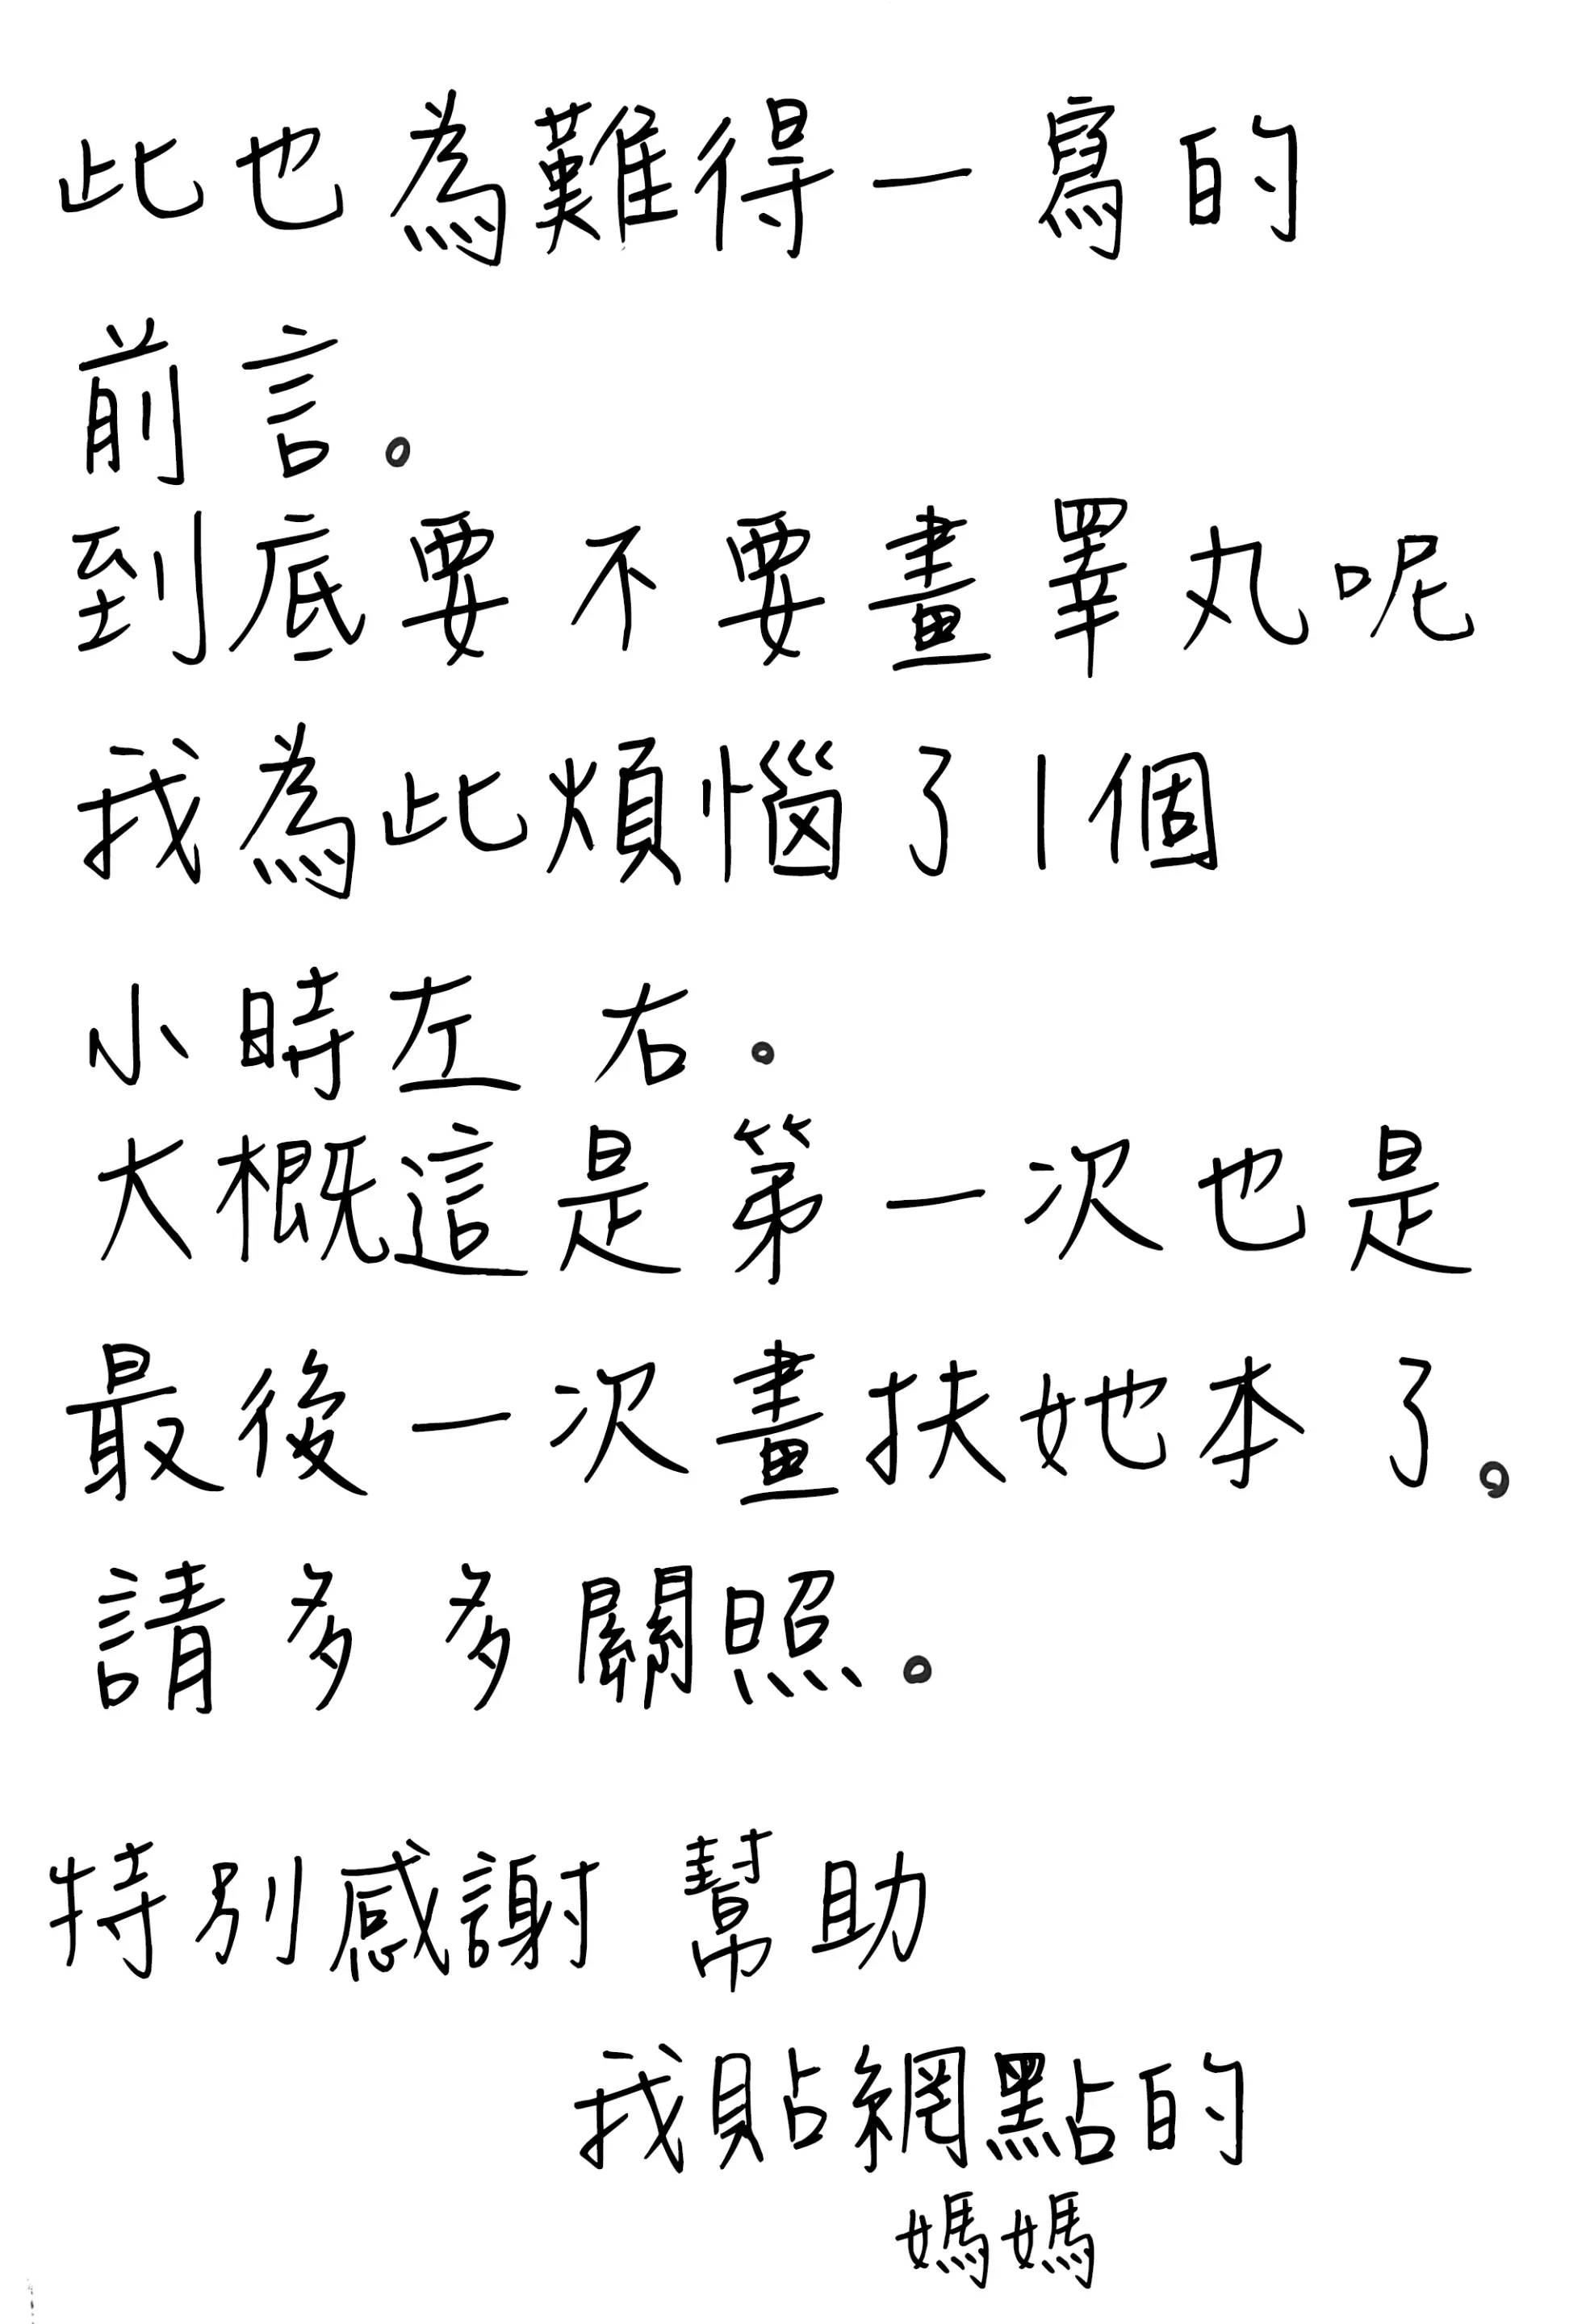 此也為難得一寫的
前言。
到底要不要畫睪丸呢
我為此煩惱了1個
小時左右。
大概這是第一次也是
最後一次畫扶她本了。
請多多關照。
特別感謝幫助
我貼網點的
媽媽